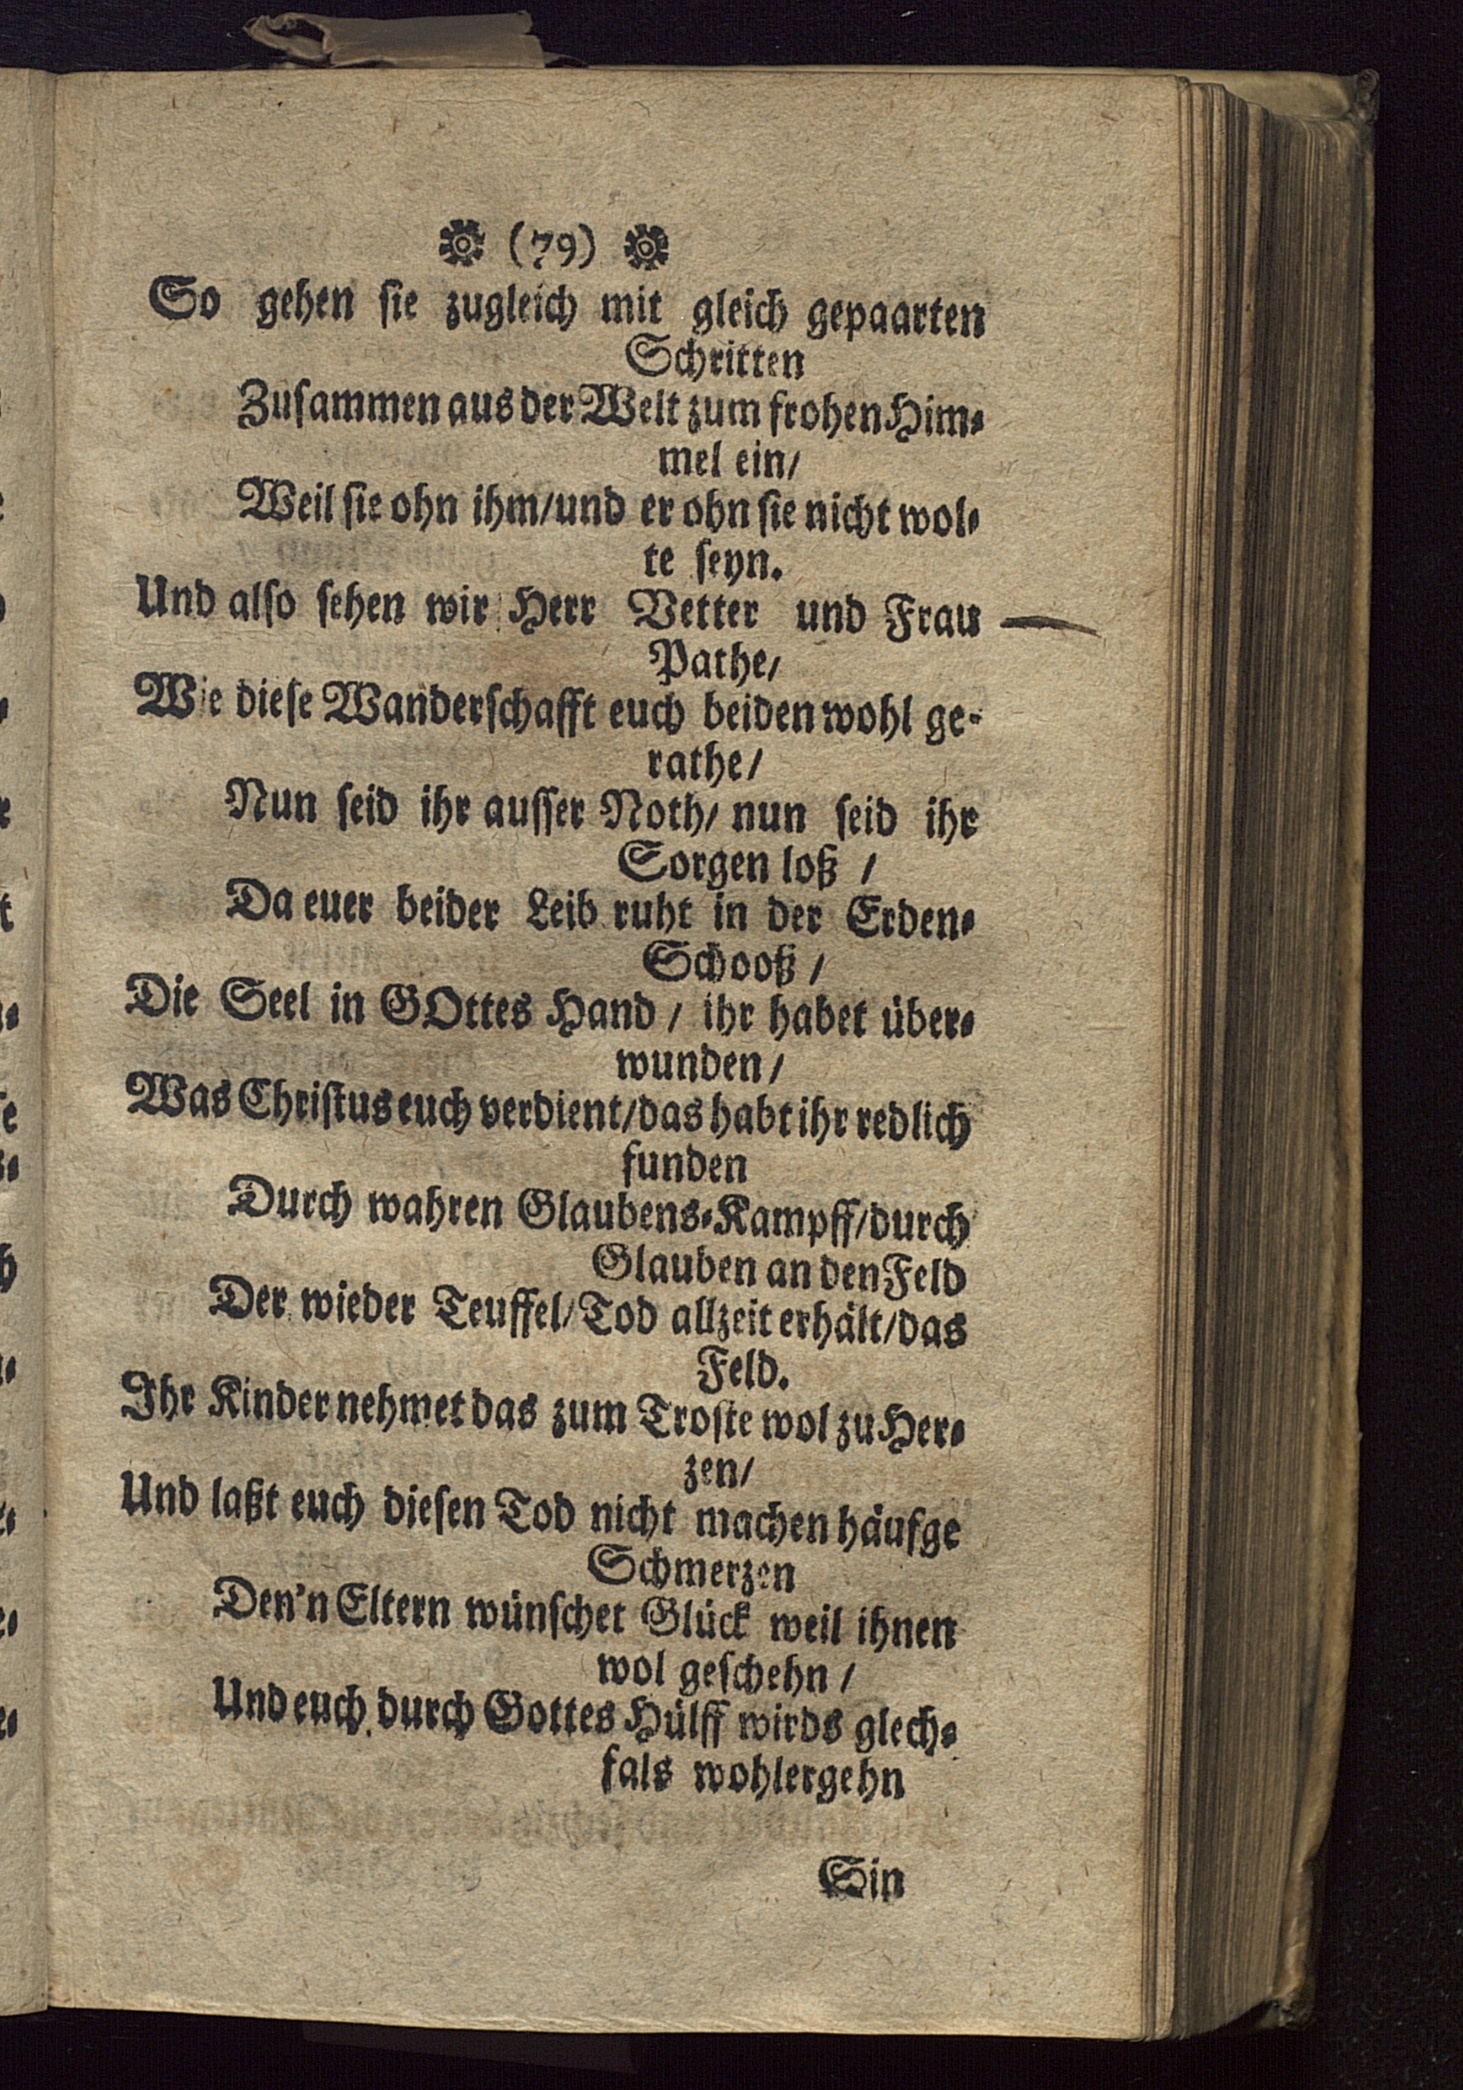 (79)
So gehen sie zugleich mit gleich gepaarten
Schritten
Zusammen aus der Welt zum frohen Him-
mel ein/
Weil sie ohn ihm/und er ohn sie nicht wol-
te seyn.
Und also sehen wir Herr Vetter und Frau
Pathe/
Wie diese Wanderschafft euch beiden wohl ge-
rathe/
Nun seid ihr ausser Noth/ nun seid ihr
Sorgen loß /
Da euer beider Leib ruht in der Erden-
Schooß /
Die Seel in GOttes Hand / ihr habet über-
wunden/
Was Christus euch verdient/das habt ihr redlich
funden
Durch wahren Glaubens-Kampff/durch
Glauben an den Feld
Der wieder Teuffel/Tod allzeit erhält/das
Feld.
Ihr Kinder nehmet das zum Troste wol zu Her-
zen/
Und laßt euch diesen Tod nicht machen häufge
Schmerzen
Den'n Eltern wünschet Glück weil ihnen
wol geschehn /
Und euch durch Gottes Hülff wirds glech-
fals wohlergehn
Sin